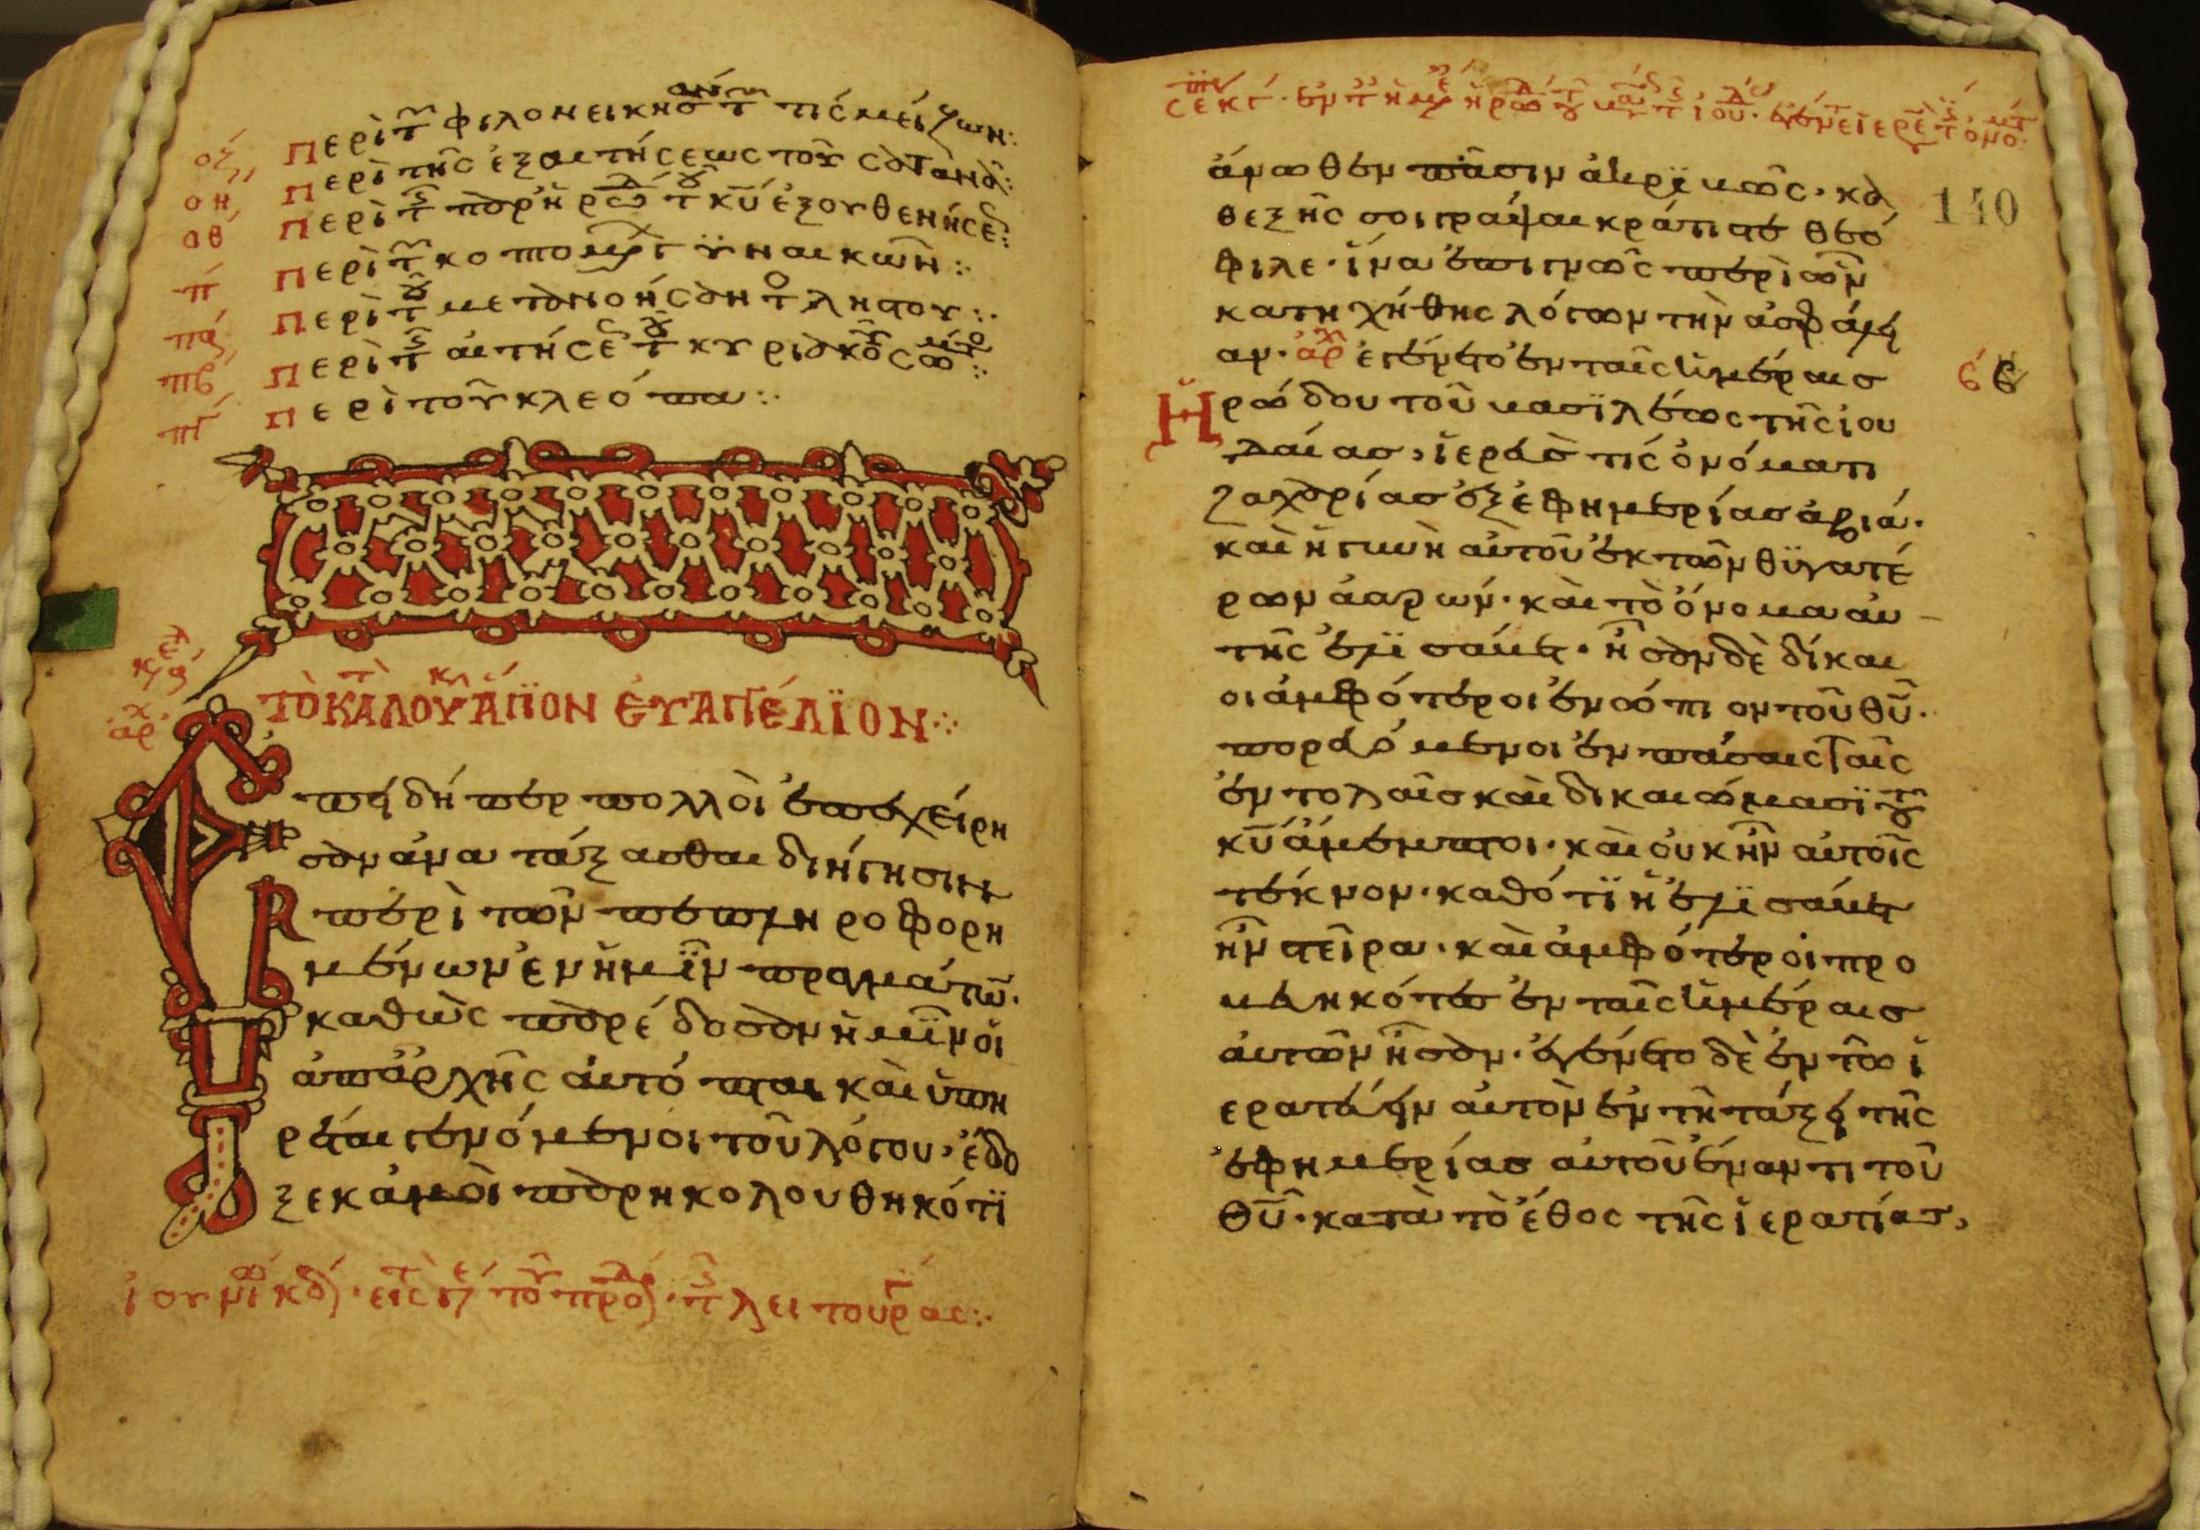 οζ, Περὶ τ φιλονεικησ τ τίς μείζων:
οη, Περὶ τῆς ἐξαιτήσεως τοῦ σατανᾶ:
οθ, Περὶ τ κυ ἐξουθενήσε:
π, Περὶ τ κοπομ γυναικῶν:
πα, Περὶ τ μετανοήσαν τ ληστου:
πβ, Περὶ τ αιτήσε τ κυριακοῦ σω:
πγ Περὶ τοῦ κλεόπα:
ΤὸΚΑΤὰΛΟΥΚΑΝ ἅγιΟΝ ἐΥΑΓΓέΛΪΟΝ
ἀρχ
Ἐπειδήπερ πολλοὶ ἐπεχείρη
σαν ἀνατάξασθαι διήγησιν
περὶ τῶν πεπληροφορη
μένων ἐν ἡμῖν πραγμάτῶ·
καθὼς παρέδοσαν ἡμῖν οἱ
ἀπἀρχῆς αὐτόπται καὶ ὑπη
ρέται γενόμενοι τοῦ λόγου· ἔδο
ξε κἀμοὶ παρηκολουθηκότϊ
ἰουνι κδ· εἰς τ τοῦ προδ· τ λειτουρας:
ἄνωθεν πᾶσιν ἀκριβῶς· κα
θεξῆς σοι γράψαι κράτιστε θεό
φιλε· ἵνα ἐπιγνῶς περὶ ὧν
κατηχήθης λόγων τὴν ἀσφάλει
αν· ἀρχ ἐγένετο ἐν ταῖς ἡμέραισ
Ἡρώδου τοῦ βασϊλέως τῆς ἰου
δαίασ, ἱερεύσ τίς ὀνόματι
ζαχαρίασ ἐξ ἐφημερίασ ἀβιά·
καὶ ἡ γυνὴ αὐτοῦ ἐκ τῶν θϋγατέ
ρων ἀαρών· καὶ τὸ ὄνομα αὐ
τῆς ἐλϊσάβετ· ἦσαν δὲ δίκαι
οι ἀμφότεροι ἐνώπιον τοῦ θῦ·
πορευόμενοι ἐν πάσαις ταῖς
ἐντολαῖσ καὶ δικαιώμασϊ τοῦ
κῦ ἄμεμπτοι· καὶ οὐκ ἦν αὐτοῖς
τέκνον· καθότϊ ἡ ἐλϊσάβετ
ἦν στεῖρα· καὶ ἀμφότεροι προ
βεβηκότεσ ἐν ταῖς ἡμέραισ
ἀυτῶν ἦσαν· ἐγένετο δὲ ἐν τῶ ἱ
ερατεύειν αὐτὸν ἐν τῆ τάξει τῆς
ἐφημερίασ αὐτοῦ ἔναντι τοῦ
θῦ· κατὰ τὸ ἔθος τῆς ἱερατίασ,
140